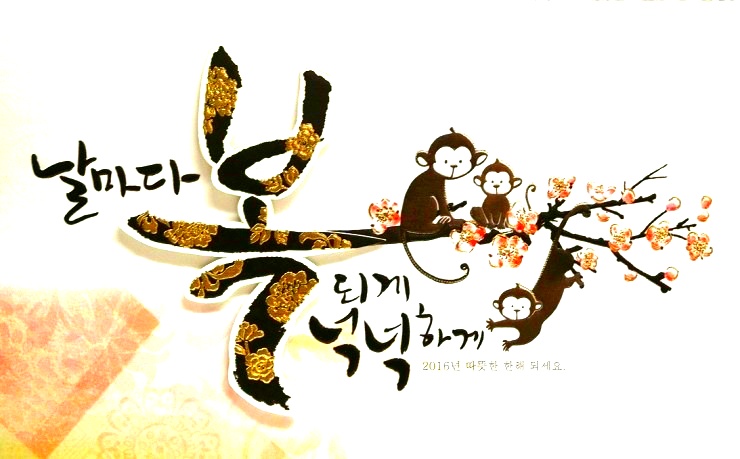 날마다 복되게
넉넉하게
2016년 따뜻한 한해 되세요.